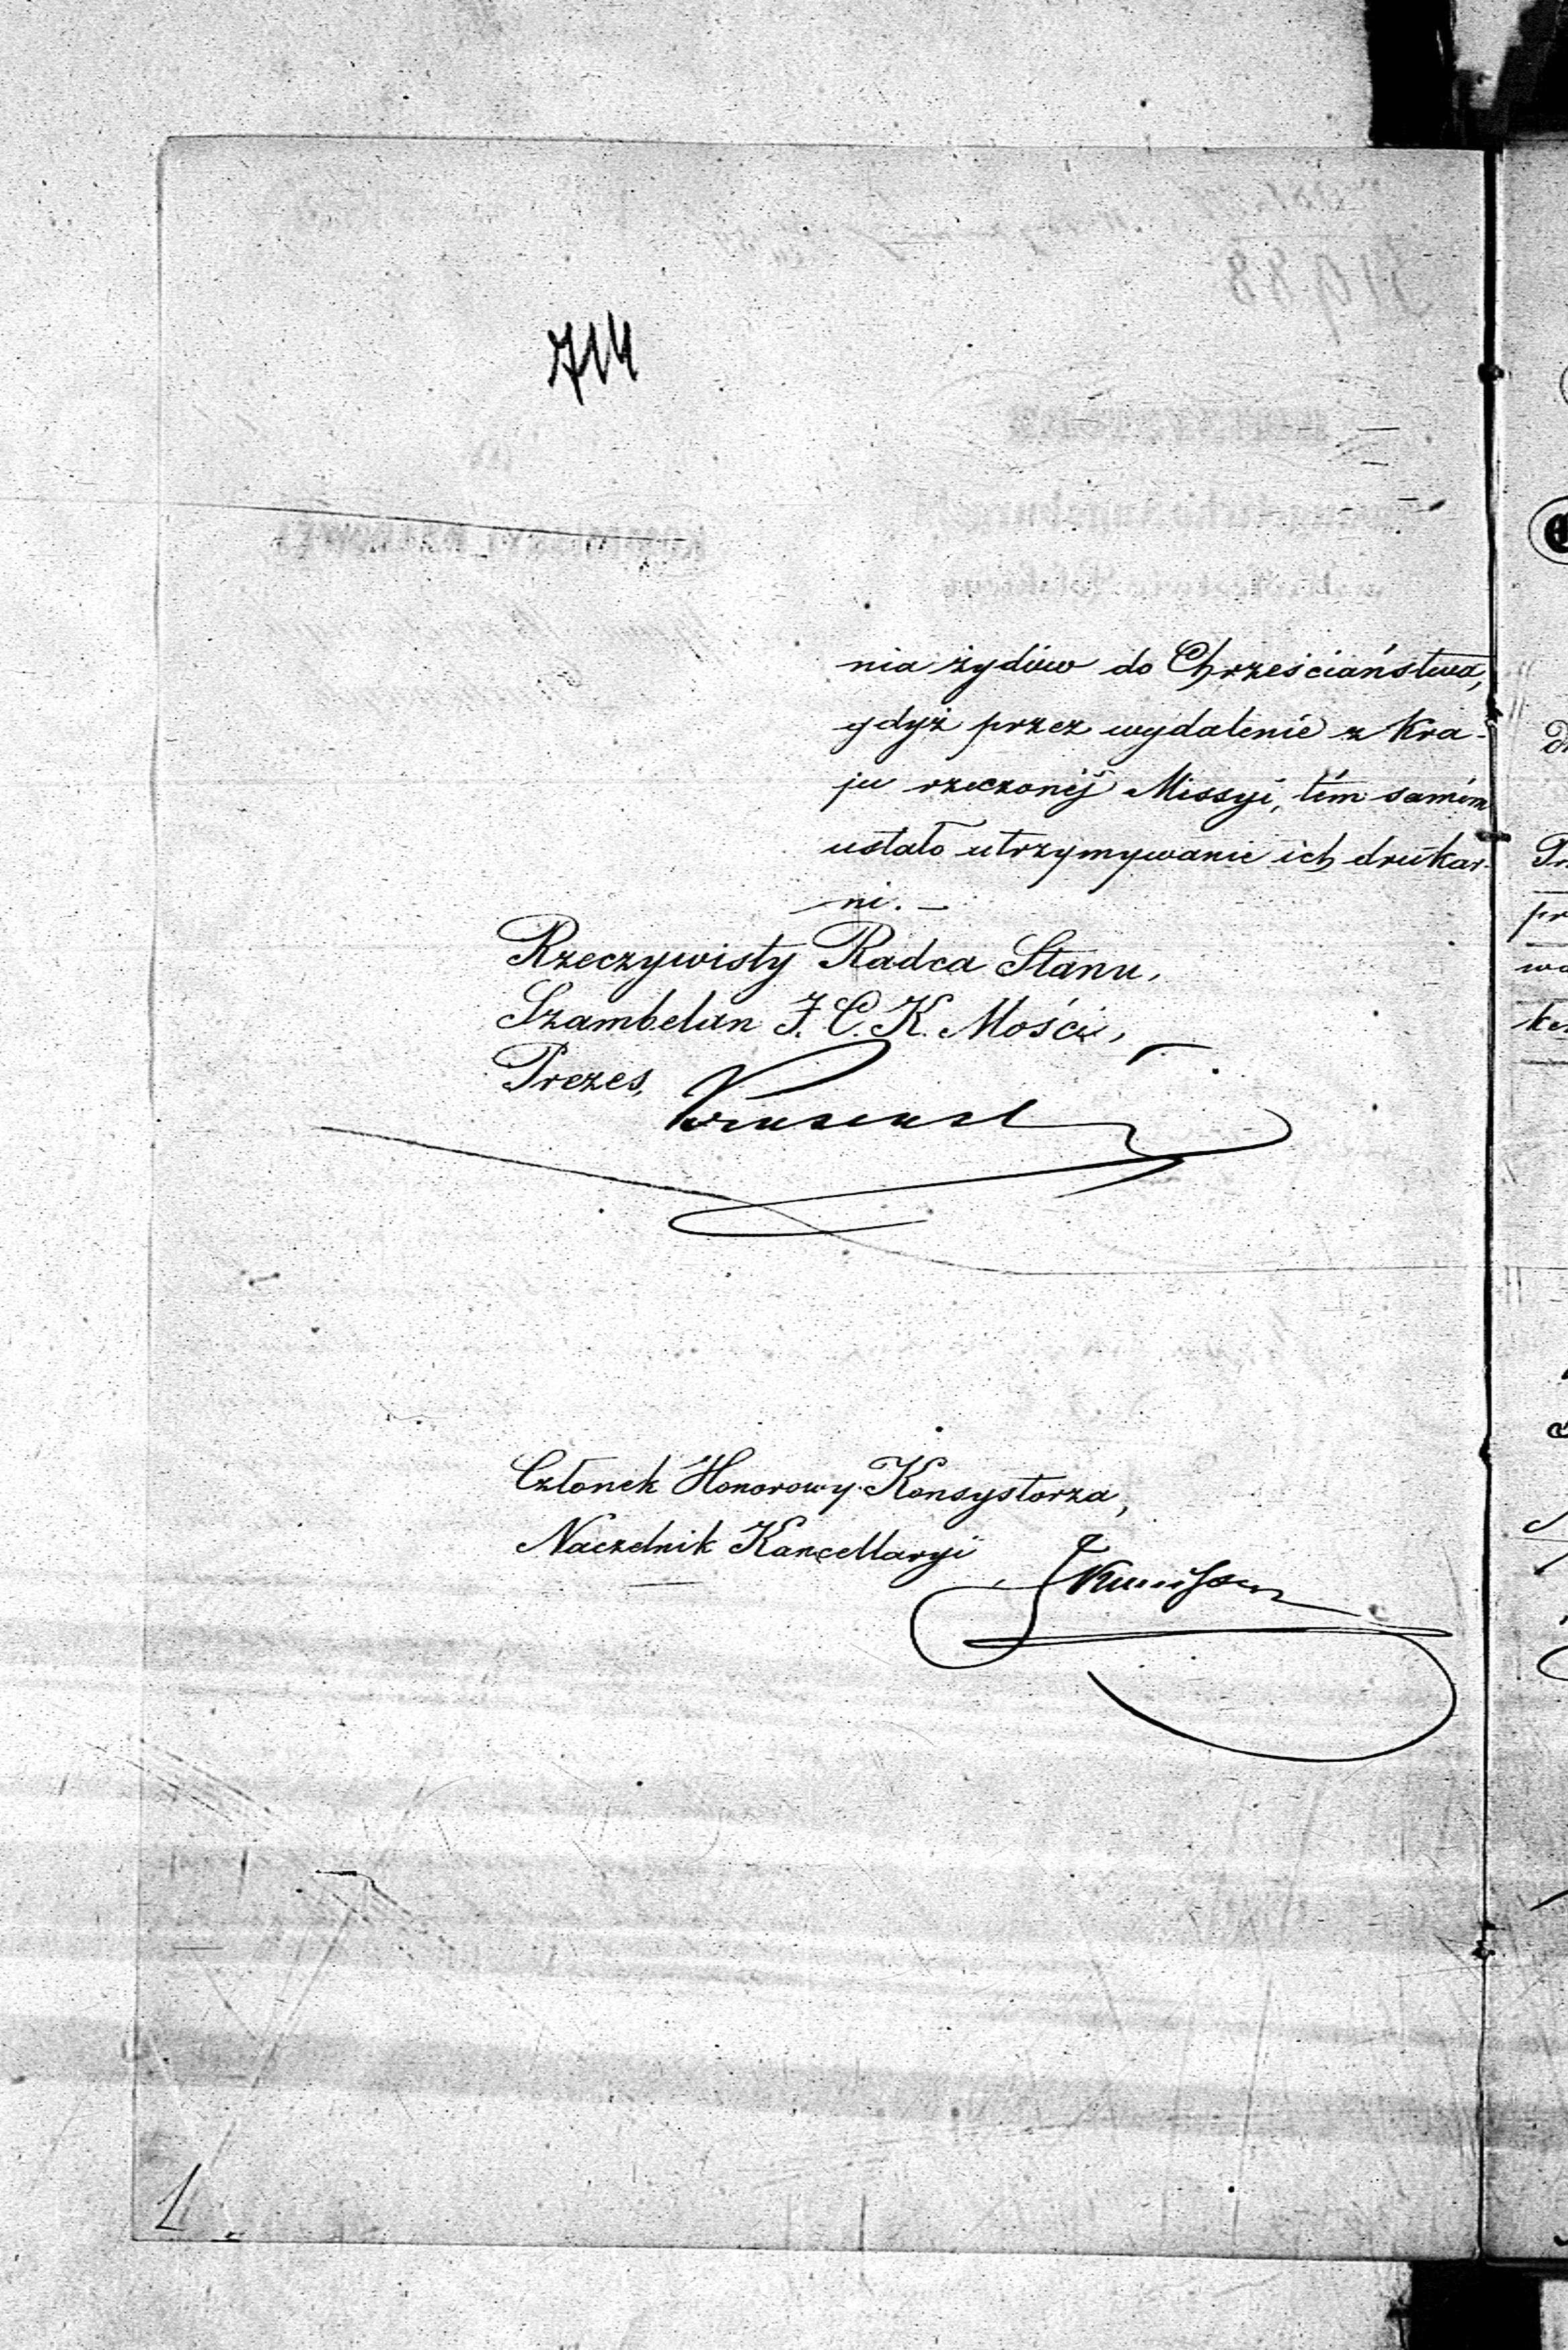 714
nia żydów do Chrześciaństwa,
gdyż przez wydalenie z Kra-
ju rzeczonéj Missyi, tém samém
ustało utrzymywanie ich drukar-
ni. —
Rzeczywisty Radca Stanu,
Szambelan J. C. K. Mości,
Prezes,
Członek Honorowy Konsystorza,
Naczelnik Kancellaryi